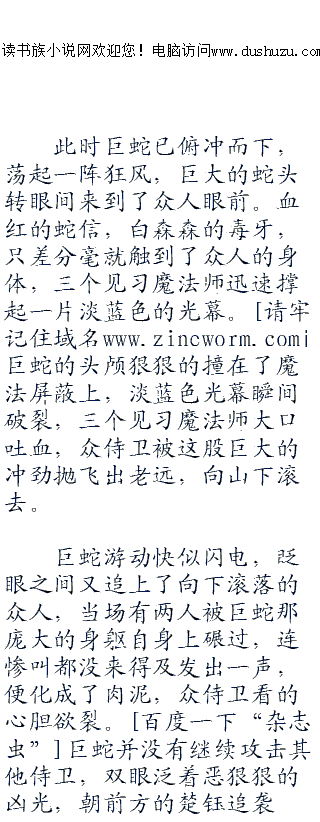 读书族小说网欢迎您！电脑访问www.dushuzu.com
此时巨蛇已俯冲而下，
荡起一阵狂风，巨大的蛇头
转眼间来到了众人眼前。血
红的蛇信，白森森的毒牙，
只差分毫就触到了众人的身
体，三个见习魔法师迅速撑
起一片淡蓝色的光幕。[请牢
记住域名www.zincworm.com|
巨蛇的头颅狠狠的撞在了魔
法屏蔽上，淡蓝色光幕瞬间
破裂，三个见习魔法师大口
吐血，众侍卫被这股巨大的
冲劲抛飞出老远，向山下滚
去。
巨蛇游动快似闪电，眨
眼之间又追上了向下滚落的
众人，当场有两人被巨蛇那
庞大的身躯自身上碾过，连
惨叫都没来得及发出一声，
便化成了肉泥，众侍卫看的
心胆欲裂。[百度一下“杂志
虫”]巨蛇并没有继续攻击其
他侍卫，双眼泛着恶狠狠的
凶光，朝前方的楚钰追袭